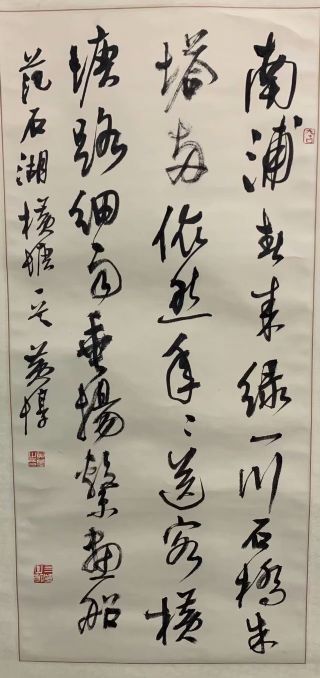 南浦春来绿一川石橋朱
塔两依然年〻送客横
塘路细雨垂楊繫畫船
范石湖横塘一首 黄惇